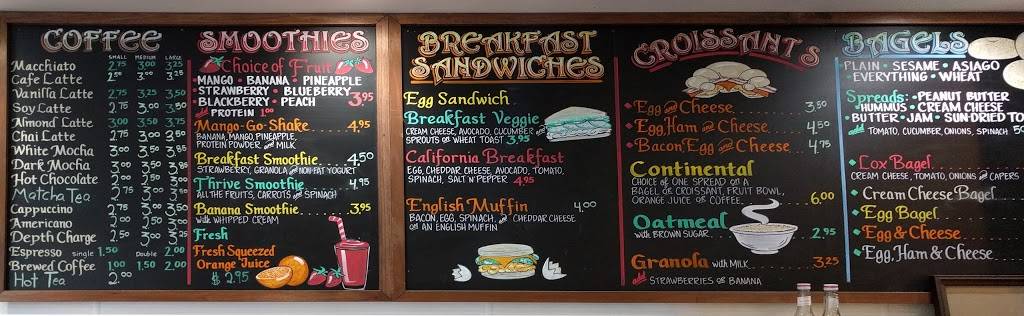 COFFEE
SMALL MEDIUM LARGE
Macchiato 2.75 3.00 3.25
Cafe Latte 2.50 3.00 3.25
Vanilla Latte 2.75 3.25 3.50
Soy Latte 2.75 3.00 3.50
Almond Latte 3.00 3.50 3.75
Chai Latte 2.75 3.00 3.50
White Mocha 3.00 3.50 3.85
Dark Mocha 3.00 3.50 3.85
Hot Chocolate 2.00 3.00 3.50
Matcha Tea
Cappuccino 2.75 3.00
Americano 2.00 2.50 3.00
Depth Charge 2.50 3.00 3.25
Espresso Single 1.50 Double 2.00
Brewed Coffee 1.00 1.50 2.00
Hot Tea 2.00
SMOOTHIES
Choice of Fruit
• MANGO • BANANA • PINEAPPLE
STRAWBERRY • BLUEBERRY
BLACKBERRY • PEACH 3.95
add PROTEIN 1.00
Mango-Go-Shake 4.95
BANANA, MANGO, PINEAPPLE
PROTEIN POWDER and MILK
Breakfast Smoothie 4.50
STRAWBERRY, GRANOLA and NON-FAT YOGURT
Thrive Smoothie 4.95
ALL THE FRUITS, CARROTS and SPINACH
Banana Smoothie 3.95
with WHIPPED CREAM
Fresh
Fresh Squeezed
Orange Juice
$ 2.95
BREAKFAST
SANDWICHES
Egg Sandwich
Breakfast Veggie
CREAM CHEESE, AVOCADO, CUCUMBER and
SPROUTS on WHEAT TOAST 3.95
California Breakfast
EGG, CHEDDAR CHEESE, AVOCADO, TOMATO,
SPINACH, SALT N' PEPPER 4.95
English Muffin 4.00
BACON, EGG, SPINACH, and CHEDDAR CHEESE
on AN ENGLISH MUFFIN
CROISSANTS
• Egg and Cheese 3.50
• Egg, Ham and Cheese 4.50
• Bacon, Egg and Cheese 4.75
Continental
CHOICE OF ONE SPREAD ON A
BAGEL or CROISSANT, FRUIT BOWL,
ORANGE JUICE or COFFEE 6.00
Oatmeal
with BROWN SUGAR 2.95
Granola with MILK 3.25
add STRAWBERRIES or BANANA
BAGELS
PLAIN • SESAME • ASIAGO
• EVERYTHING • WHEAT
Spreads: • PEANUT BUTTER
• HUMMUS • CREAM CHEESE
• BUTTER • JAM • SUN-DRIED TO
add TOMATO, CUCUMBER, ONIONS, SPINACH
• Lox Bagel
CREAM CHEESE, TOMATO, ONIONS and CAPERS
• Cream Cheese Bagel
• Egg Bagel
• Egg & Cheese
• Egg, Ham & Cheese